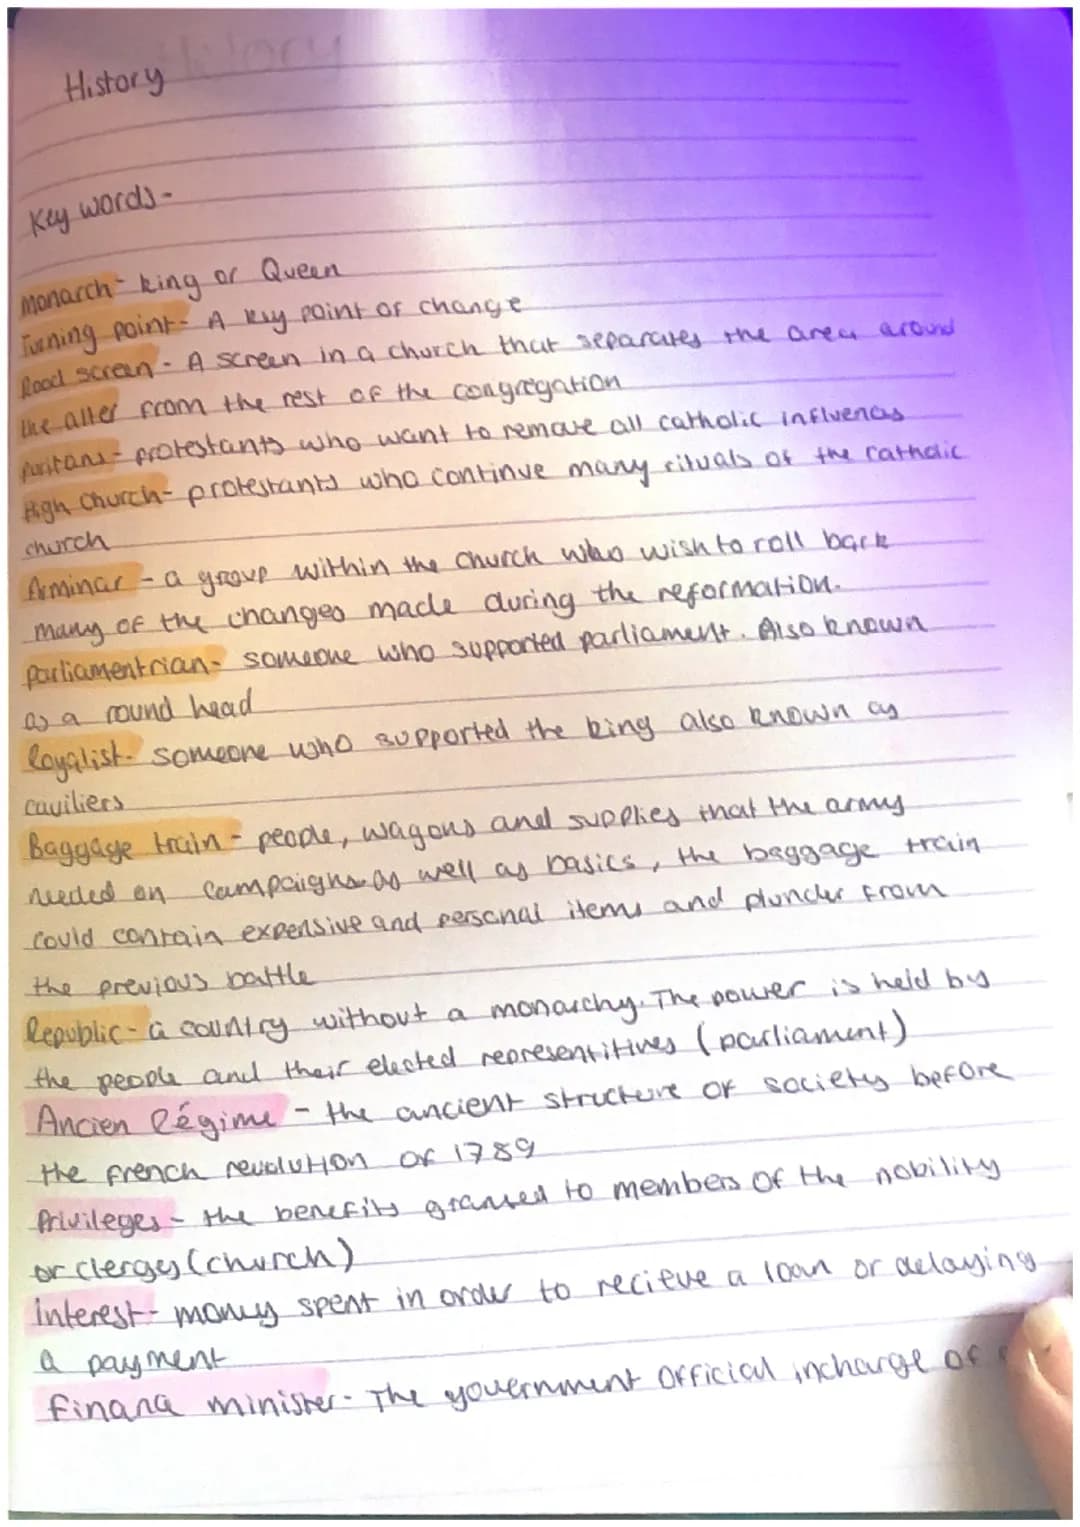 History
Key words-
Monarch- king or Queen
Turning point- A key point of change
Rood screen - A screen in a church that separates the area around
the alter from the rest of the congregation
puritans- protestants who want to remove all catholic influences
High Church- protestants who continue many rituals of the catholic
church
Arminar - a group within the church who wish to roll back
many of the changes made during the reformation.
parliamentrian- someone who supported parliament. Also known
as a round head
Royalist- someone who supported the king also known as
caviliers
Baggage train - people, wagons and supplies that the army
needed on campaigns. as well as basics, the baggage train
could contain expensive and personal items and plunder from
the previous battle
Republic- a country without a monarchy. The power is held by
the people and their elected representitives (parliament)
Ancien Régime - the ancient structure of society before
the french revolution of 1789
Privileges - the benefits granted to members of the nobility
or clergy (church)
interest- money spent in order to recieve a loan or delaying
a payment
finance minister- The government official incharge of